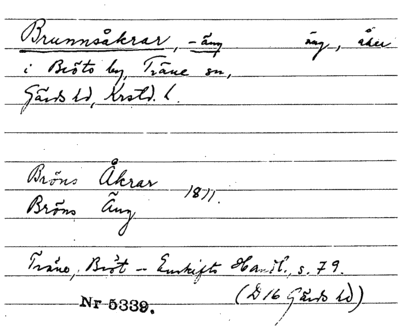 Brunnsåkrar, -äng äng, åker
i Bröts by, Träne sn,
Gärds hd, Krstd. l.
Bröns Åkrar 1811.
Bröns Äng
Träne, Bröt - Enskifts Handl., s. 79.
(D16 Gärds hd)
Nr 5339.